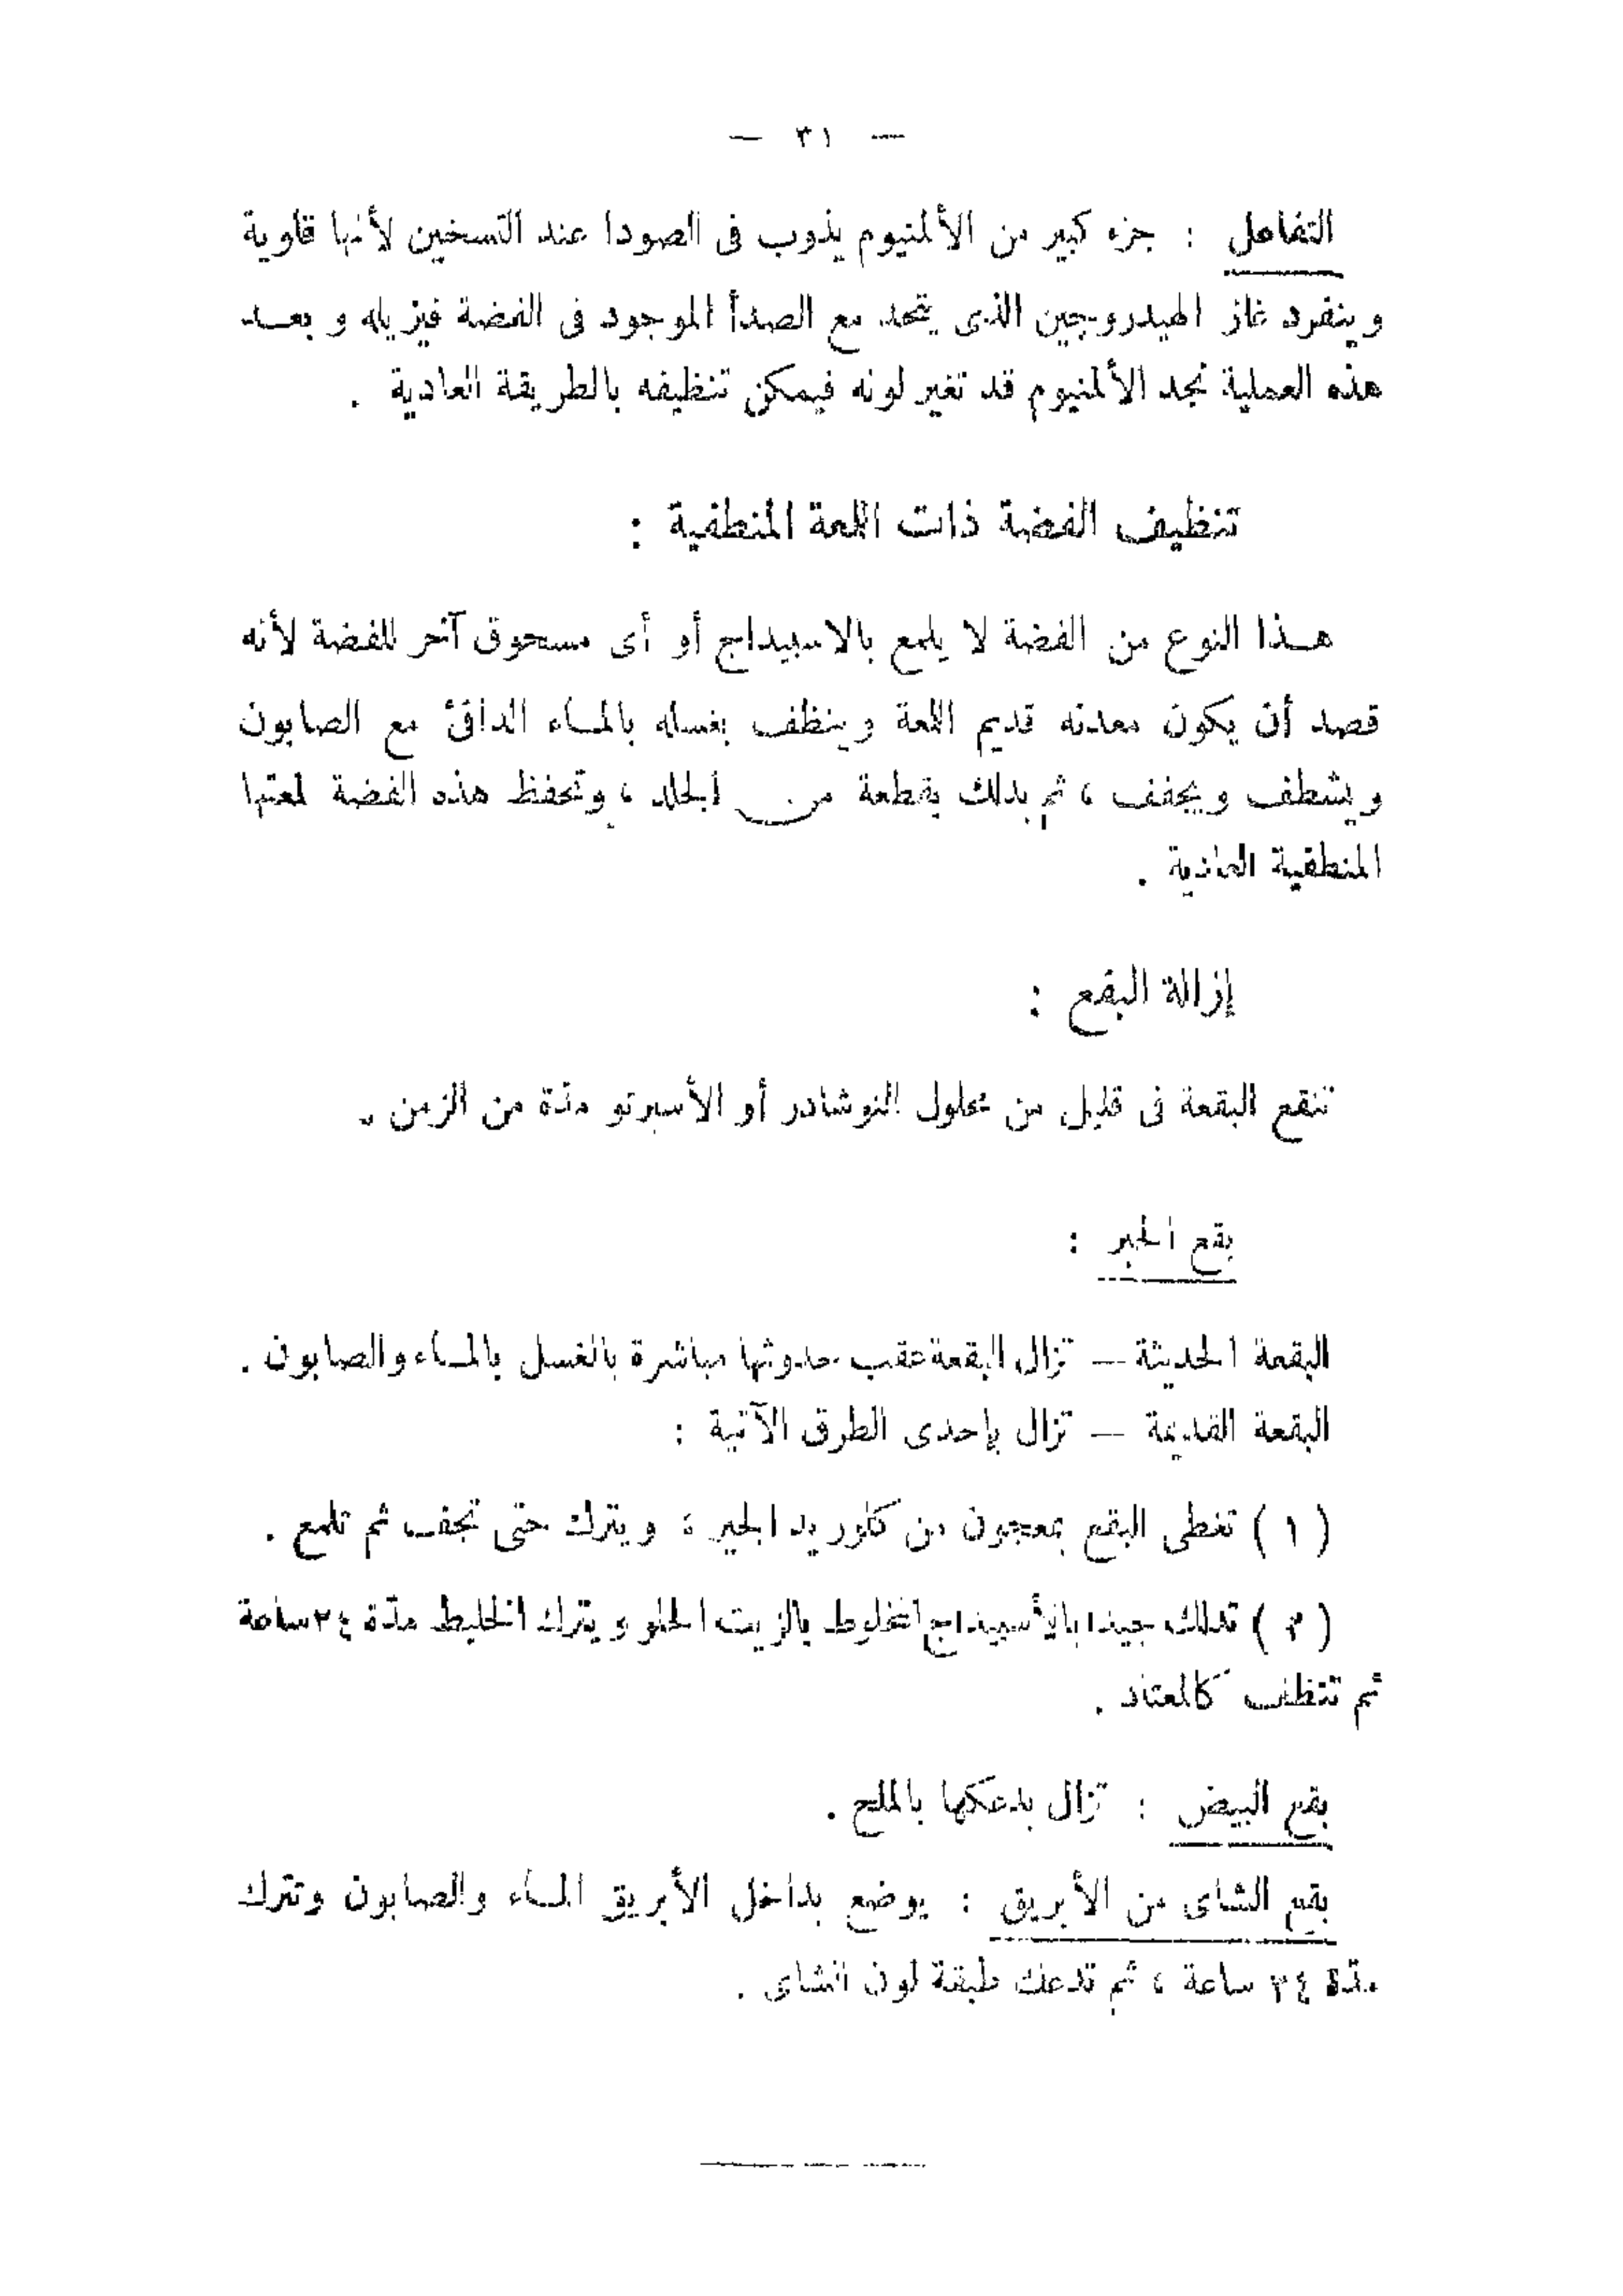 — ٣١ —
التفاعل : جزء كبير من الألمنيوم يذوب فى الصودا عند التسخين لأنها قلوية
وينفرد غاز الهيدروجين الذى يتحد مع الصدأ الموجود فى الفضة فيزيله وبعــد
هذه العملية نجد الألمنيوم قد تغير لونه فيمكن تنظيفه بالطريقة العادية .
تنظيف الفضة ذات اللمعة المنطفية :
هــذا النوع من الفضة لا يلمع بالاسبيداج أو أى مسحوق آخر للفضة لأنه
قصد أن يكون معدنه قديم اللمعة وينظف بغسله بالمــاء الدافئ مع الصابون
ويشطف ويجفف ، ثم يدلك بقطعة من الجلد ، وتحفظ هذه الفضة لمعتها
المنطفية العادية .
إزالة البقع :
تنقع البقعة فى قليل من محلول النوشادر أو الأسبرتو مدّة من الزمن .
بقع الحبر :
البقعة الحديثة — تزال البقعة عقب حدوثها مباشرة بالغسل بالمــاء والصابون .
البقعة القديمة — تزال بإحدى الطرق الآتية :
( ١ ) تغطى البقع بمعجون من كلوريد الجير ، ويترك حتى تجف ثم تلمع .
( ٢ ) تدلك جيدا بالأسبيداج المخلوط بالزيت الحلو ويترك الخليط مدّة ٢٤ ساعة
ثم تنظف كالمعتاد .
بقع البيض : تزال بدعكها بالملح .
بقع الشاى من الأبريق : يوضع بداخل الأبريق المــاء والصابون وتترك
مدّة ٢٤ ساعة ، ثم تدعك طبقة لون الشاى .